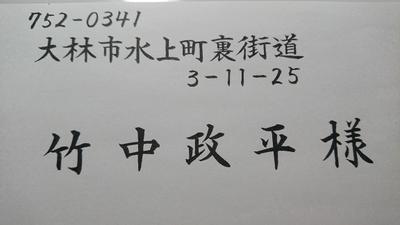 752-0341
大林市水上町裏街道
3-11-25
竹中政平様